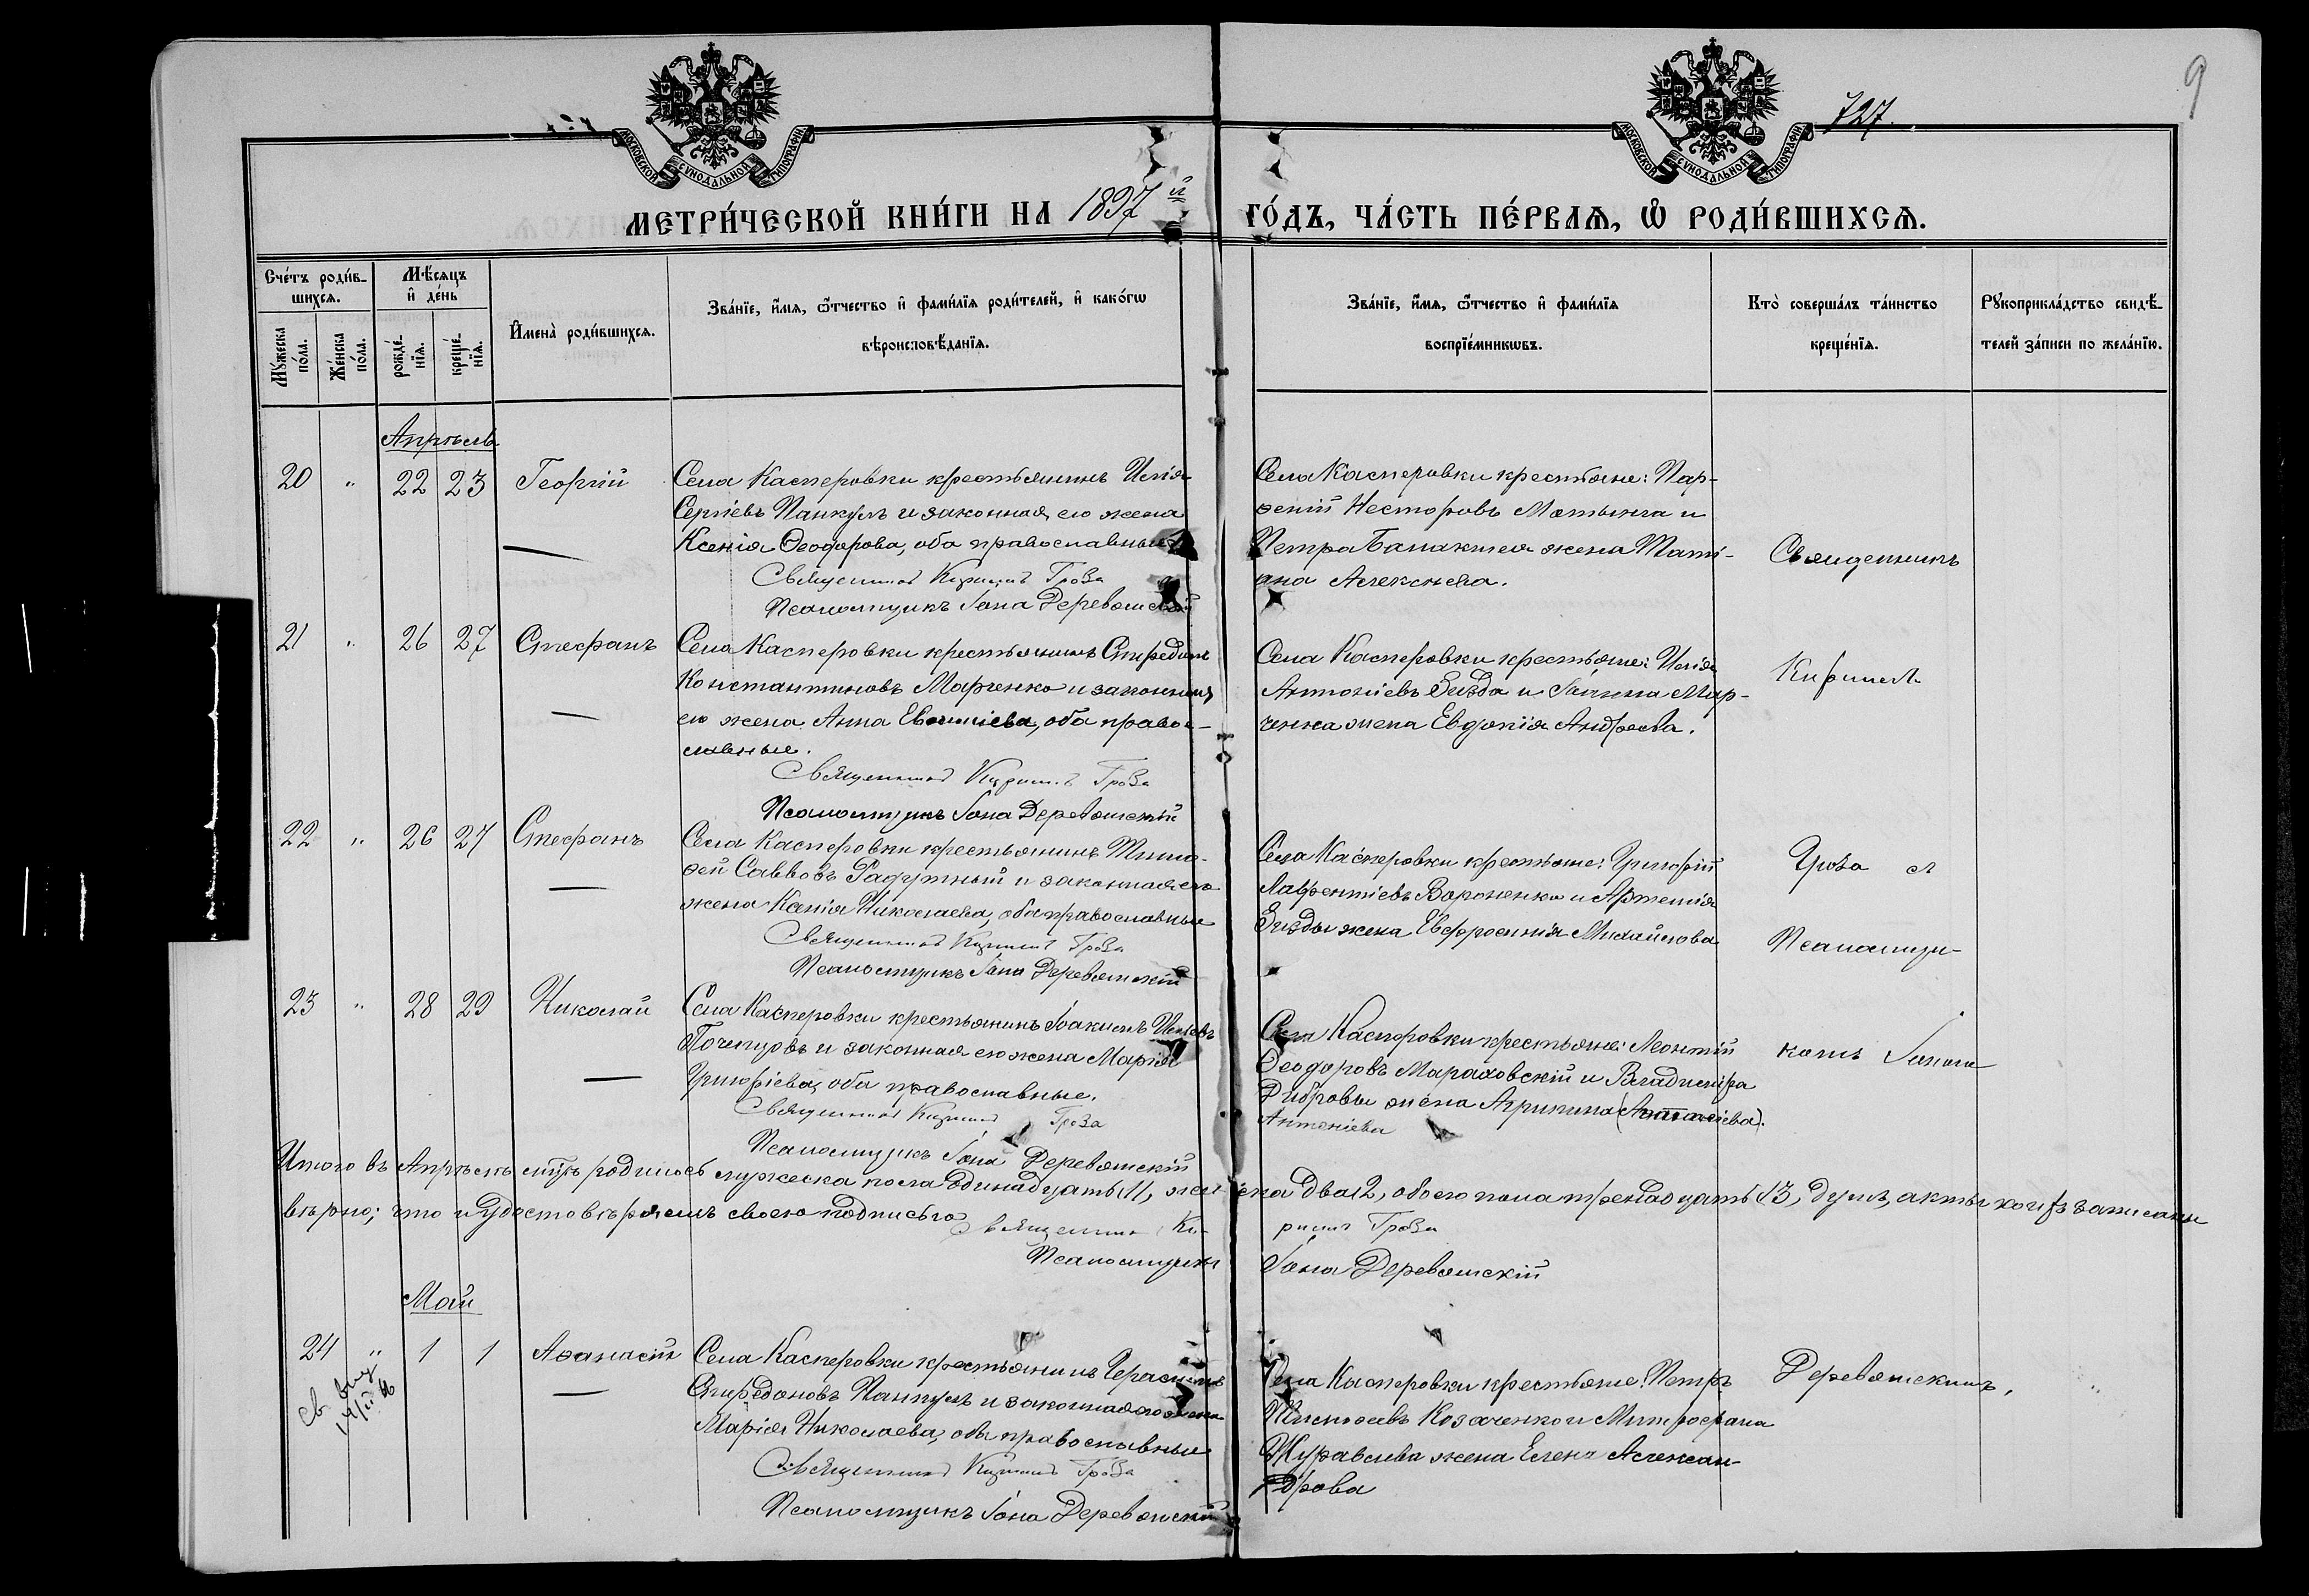 9
727.
МОСКОВСКОЙ СУНОДАЛЬНОЙ ТИПОГРАФІИ
МОСКОВСКОЙ СУНОДАЛЬНОЙ ТИПОГРАФІИ
МЕТРИ́ЧЕСКОЙ КНИ́ГИ НА 1897й ГО́ДЪ, ЧА́СТЬ ПЕ́РВАѦ, Ѽ РОДИ́ВШИХСѦ.
Счéтъ роди́в-
шихсѧ.
Мѣ́сѧцъ
и҆ дéнь
Мꙋ́жеска
по́ла.
Жéнска
по́ла.
рождé-
нїѧ.
крещé-
нїѧ.
И҆менà роди́вшихсѧ.
Звáнїе, и҆́мѧ, ѻ҆́тчество и҆ фами́лїѧ роди́телей, и҆ какóгѡ
вѣроисповѣ́данїѧ.
Звáнїе, и҆́мѧ, ѻ҆́тчество и҆ фами́лїѧ
воспрїéмникѡвъ.
Кто̀ совершáлъ тáинство
крещéнїѧ.
Рꙋкоприклáдство свидѣ́-
телей зáписи по желáнїю.
Апрѣль
20 " 22 23 Георгій
Села Касперовки крестьянинъ Илія
Сергіевъ Панкулъ и законная его жена
Ксенія Ѳеодорова, оба православные
Священникъ Кириллъ Гроза
Псаломщикъ Іона Деревянскій
Села Касперовки крестьяне: Пар-
ѳеній Несторовъ Мотынга и
Петра Балакшея жена Таті-
ана Алексѣева.
Священникъ
21 " 26 27 Стефанъ
Села Касперовки крестьянинъ Спиридонъ
Константиновъ Марченко и законная
его жена Анна Евѳиміева, оба право-
славные.
Священникъ Кириллъ Гроза
Псаломщикъ Іона Деревянскій
Села Касперовки крестьяне: Илія
Антоніевъ Гнѣзда и Іоанна Мар-
ченка жена Евдокія Андреева.
Кириллъ
22 " 26 27 Стефанъ
Села Касперовки крестьянинъ Тимо-
ѳей Саввовъ Радутный и законная его
жена Ксенія Николаева, оба православные
Священникъ Кириллъ Гроза
Псаломщикъ Іона Деревянскій
Села Касперовки крестьяне: Григорій
Лаврентіевъ Вороненко и Артемія
Гнѣзды жена Евфросинія Михайлова
Гроза съ
Псаломщи-
23 " 28 29 Николай
Села Касперовки крестьянинъ Іоакимъ Иліевъ
Почепцовъ и законная его жена Марія
Григорієва, оба православные.
Священникъ Кириллъ Гроза
Псаломщикъ Іона Деревянскій
Села Касперовки крестьяне: Леонтій
Ѳеодоровъ Мараховскій и Владиміра
Дибровы жена Агрипина
Антоніева
комъ Іоною
Итого въ Апрѣлѣ мцѣ родилось мужеска пола одинадцать 11, женска два 2, обоего пола тринадцать 13, душъ, акты коихъ записаны
вѣрно; что и удостовѣряемъ своею подписью
Священникъ Кириллъ Гроза
Псаломщикъ Іона Деревянскій
Май
24 " 1 1 Аѳанасій
Села Касперовки крестьянинъ Герасимъ
Спиридоновъ Панкулъ и законная его жена
Марія Николаева, оба православные
Священникъ Кириллъ Гроза
Псаломщикъ Іона Деревянскій
Села Касперовки крестьяне: Петръ
Тимоѳеевъ Козаченко и Митрофана
Журавлева жена Елена Алексан-
дрова
Деревянскимъ.